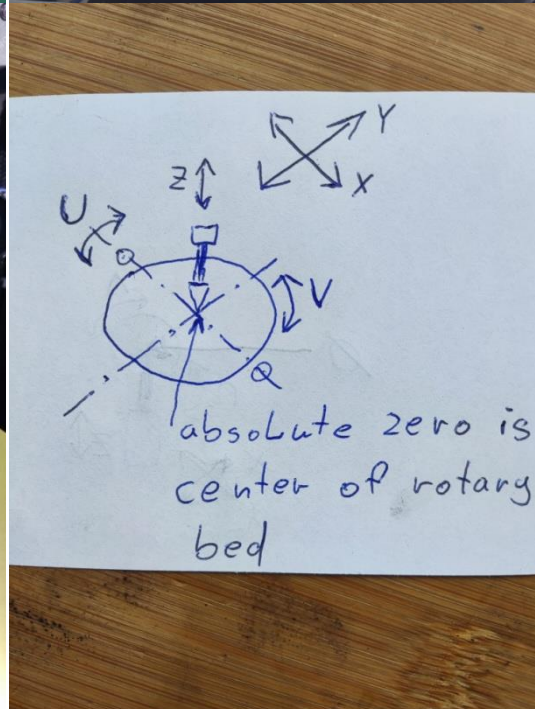 Y
Z
X
U
V
absolute zero is
center of rotary
bed